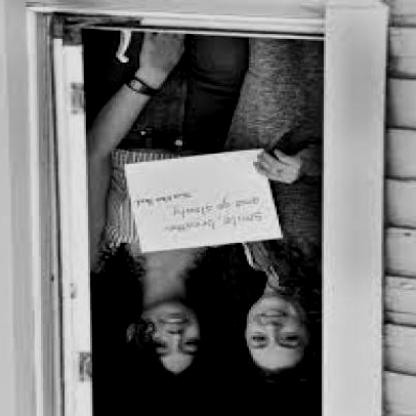 smile, breathe
and go slowly
Thich Nhat Hanh